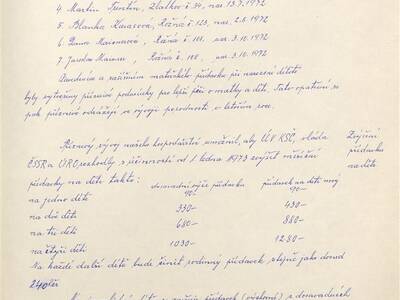 4. Martin Trestín, Zlatkov č 34, nar 13.7.1972
5. Blanka Karasová, Rožná č 123, nar. 2.8.1972
6. Dana Marcusová, Rožná č. 108, nar. 3.10.1972
7. Jarda Marcus, Rožná č. 108, nar. 3.10.1972
Zavedením a zvýšením mateřského přídavku při narození dítěte
byly vytvořeny příznivé podmínky pro lepší péči o matky a děti. Tato opatření se
pak příznivě odrážejí ve vývoji porodnosti v letošním roce.
Příznivý vývoj našeho hospodářství umožnil, aby ÚV KSČ, vláda
ČSSR a ÚRO, rozhodly s účinností od 1 ledna 1973 zvýšit měsíční
přídavky na děti takto: dosavadní výše přídavku přídavek na děti nový
Zvýšení
přídavku
na děti
na jedno dítě 90.- 90.-
na dvě děti 330.- 430.-
na tři děti 680.- 880.-
na čtyři děti 1030.- 1280.-
Na každé další dítě bude činit rodinný přídavek stejně jako dosud
240 Kčs